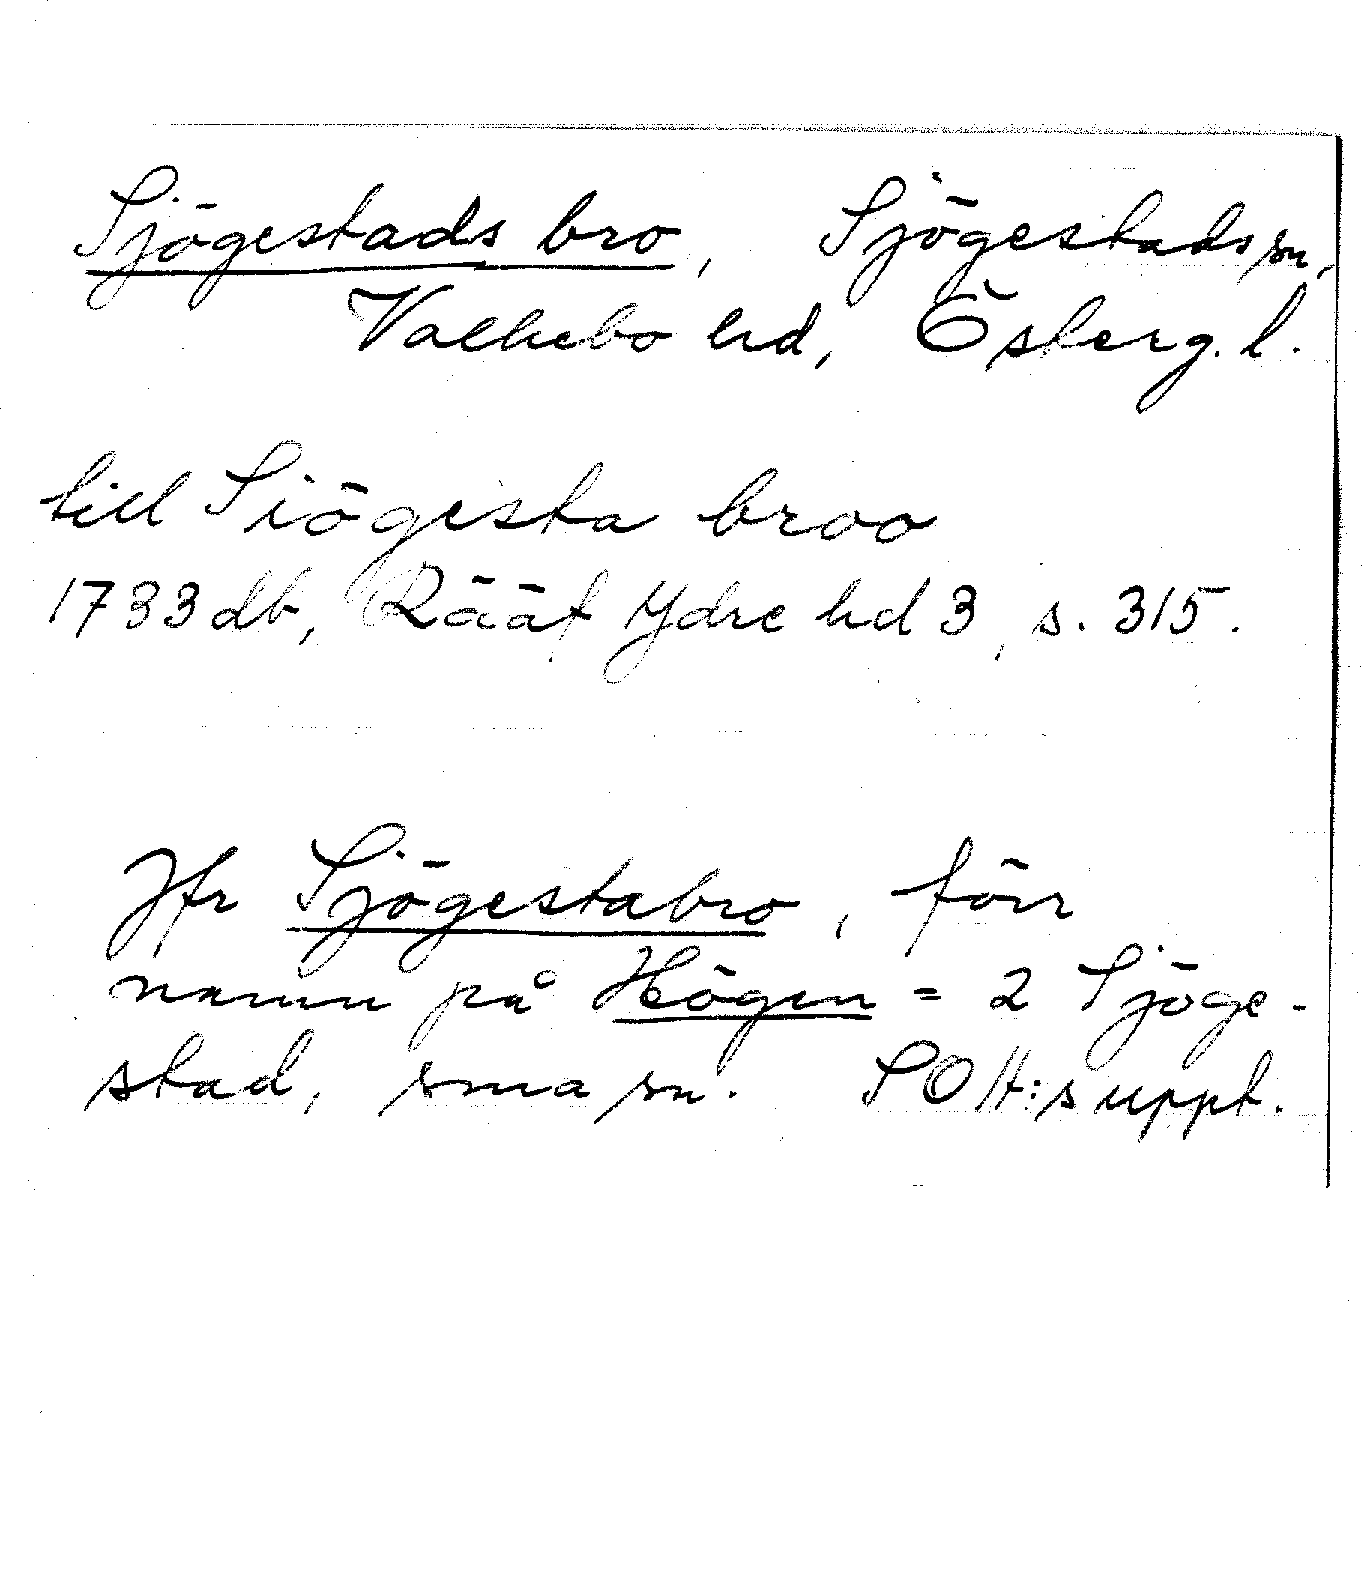 Sjögestads bro, Sjögestads sn,
Valkebo hd, Österg. l.
till Siögesta broo
1733 db, Rääf Ydre hd 3, s. 315.
Jfr Sjögestabro, förr
namn på Högen = 2 Sjöge-
stad, sma sn. SOH:s uppt.